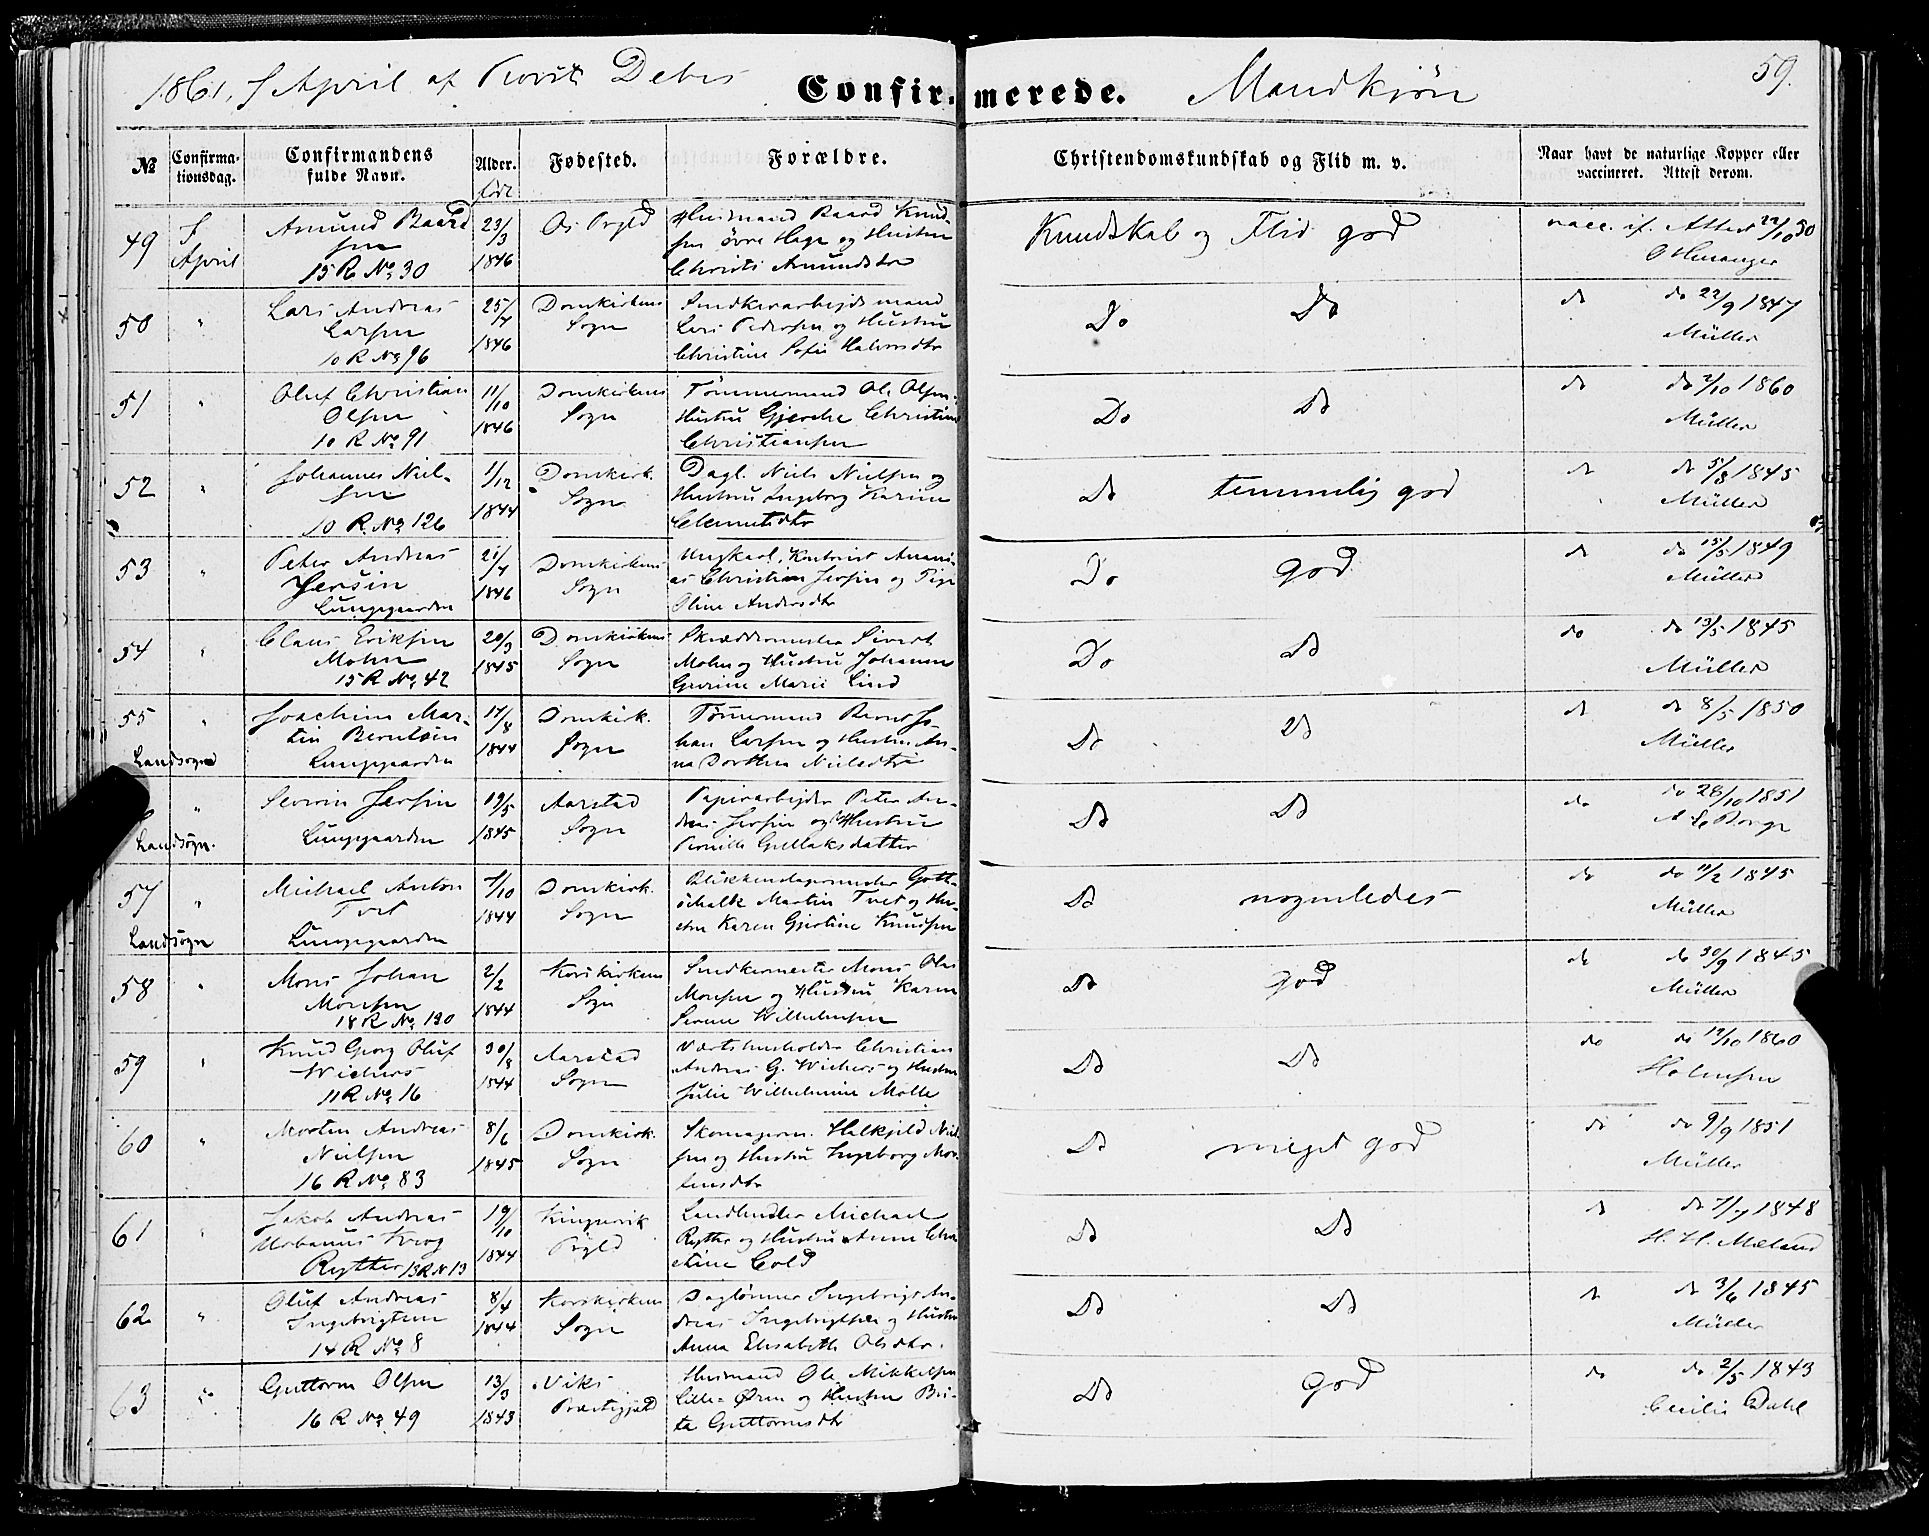 1861, 7 April af Provst Debes Confirmerede. Mandkjøn 59.
№ Confirmationsdag. Confirmandens fulde Navn. Alder. født Fødested. Forældre. Christendomskundskab og Flid m. v. Naar havt de naturlige Kopper eller vaccineret. Attest derom.
49 7 April
Amund Baard
sen
15 R No 30
23/3 1846
Os Prgld
Husmand Baard Knud-
sen øvre Hage og Hustru
Christi Amundsdtr
Kundskab og Flid god
vacc. if. Attest 22/10 50
50 "
Lars Andreas
Larsen
10 R No 96
25/4 1846
Domkirkens
Sogn
Snedkerarbejdsmand
Lars Pedersen og Hustru
Christine Sofie
Do Do
do do 22/9 1847
Müller
51 "
Oluf Christian
Olsen
10 R No 91
11/10 1846
Domkirkens
Sogn
Tømmermand Ole Olsen
Hustru Gjerche Christine
Christiansen
Do Do
do do 2/10 1860
Müller
52 "
Johannes Niel-
sen
10 R No 126
1/12 1844
Domkirk.
Sogn
Dagl. Niels Nielsen og
Hustru Ingeborg Karine
Clemetsdtr
Do temmelig god
do do 5/8 1845
Müller
53 "
Peter Andreas
Jersin
Lungegaarden
21/4 1846
Domkirkens
Sogn
Ungkarl, Kontorist Anani-
as Christian Jersin og Pige
Oline Andersdtr
Do god
do do 15/5 1849
Müller
54 "
Claus Eriksen
Mohn
15 R No 42
20/3 1845
Domkirkens
Sogn
Skræddermester Sivert
Mohn og Hustru Johanne
Gurine Marie Lind
Do Do
do do 13/5 1845
Müller
55 "
Landsogn
Joachim Mar-
tin Berntsen
Lungegaarden
17/8 1844
Domkirk.
Sogn
Tømmermand Bernt Jo-
han Larsen og Hustru An-
na Dorthea Nielsdtr
Do Do
do do 8/5 1850
Müller
"
Landsogn.
Severin Jersin
Lungegaarden
19/5 1845
Aarstad
Sogn
Papirarbejder Peter An-
dreas Jersin og Hustru
Pernille Gullaksdatter
Do Do
do do 28/10 1851
57 "
Landsogn
Michael Anton
Tvet
Lungegaarden
7/10 1844
Domkirk.
Sogn
Blikkenslagermester Gott-
schalk Martin Tvet og Hu-
stru Karen Gjertine Knudsen
Do nogenledes
do do 11/2 1845
Müller
58 "
Mons Johan
Monsen
18 R No 130
2/2 1844
Korskirkens
Sogn
Snedkermester Mons Olai
Monsen og Hustru Karen
Serine Wilhelmsen
Do god
do do 30/9 1845
Müller
59 "
Knud Georg Oluf
Wichers
11 R No 16
30/8 1844
Aarstad
Sogn
Værtshusholder Christian
Andreas G. Wichers og Hustru
Julie Wilhelmine Molle
Do Do
do do 19/10 1860
Holmsen
60 "
Morten Andreas
Nielsen
16 R No 83
8/6 1845
Domkirk.
Sogn
Skomagerm. Halkjeld Niel
sen og Hustru Ingeborg Mor-
tensdtr
Do meget god
do do 9/9 1851
Müller
61 "
Jakob Andreas
Rytter 13 R N 13
19/10 1844
Kinservik
Prgld
Landhandler Michael
Rytter og Hustru Anne Chri
stine Cold
Do Do
do do 7/7 1848
H. H. Mæland
62 "
Oluf Andreas
Ingebrigtsen
14 R No 8
8/4 1844
Korskirkens
Sogn
Daglønner Ingebrigt An-
dreas Ingebrigtsen og Hustru
Anna Elisabeth Olsdtr.
Do Do
do do 3/6 1845
Müller
63 "
Guttorm Olsen
16 R No 49
13/3 1843
Viks
Præstegjeld
Husmand Ole Mikkelsen
Lille-Øren og Hustru Bri-
ta Guttormsdtr
Do god
do do 2/5 1843
Cecilie Dahl